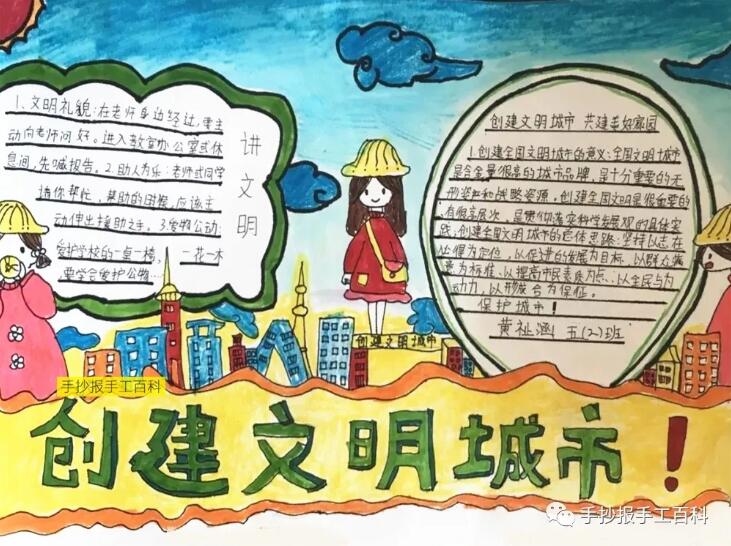 1、文明礼貌:在老师身边经过,要主
动向老师问好。进入教室办公室或休
息间,先喊报告。2.助人为乐:老师或同学
请你帮忙,帮助的时候,应该主
动伸出援助之手。3.爱物公动:
爱护学校的一桌一椅,一花一木
要学会爱护公物…
讲文明
创建文明城市 共建美好家园
1.创建全国文明城市的意义:全国文明城市
是含金量很高的城市品牌,是十分重要的无
形资产和战略资源。创建全国文明是很重要的
有很高层次、是贯彻落实科学发展观的具体实
践、创建全国文明城市的总体思路:坚持以志在
必得为定位,以促进的发展为目标、以群众满
意为标准、以提高市民素质为点、以全民与为
动力,以形成合为保征。
保护城市!
黄祉涵 五(2)班
创建文明城市
手抄报手工百科
创建文明城市!
手抄报手工百科